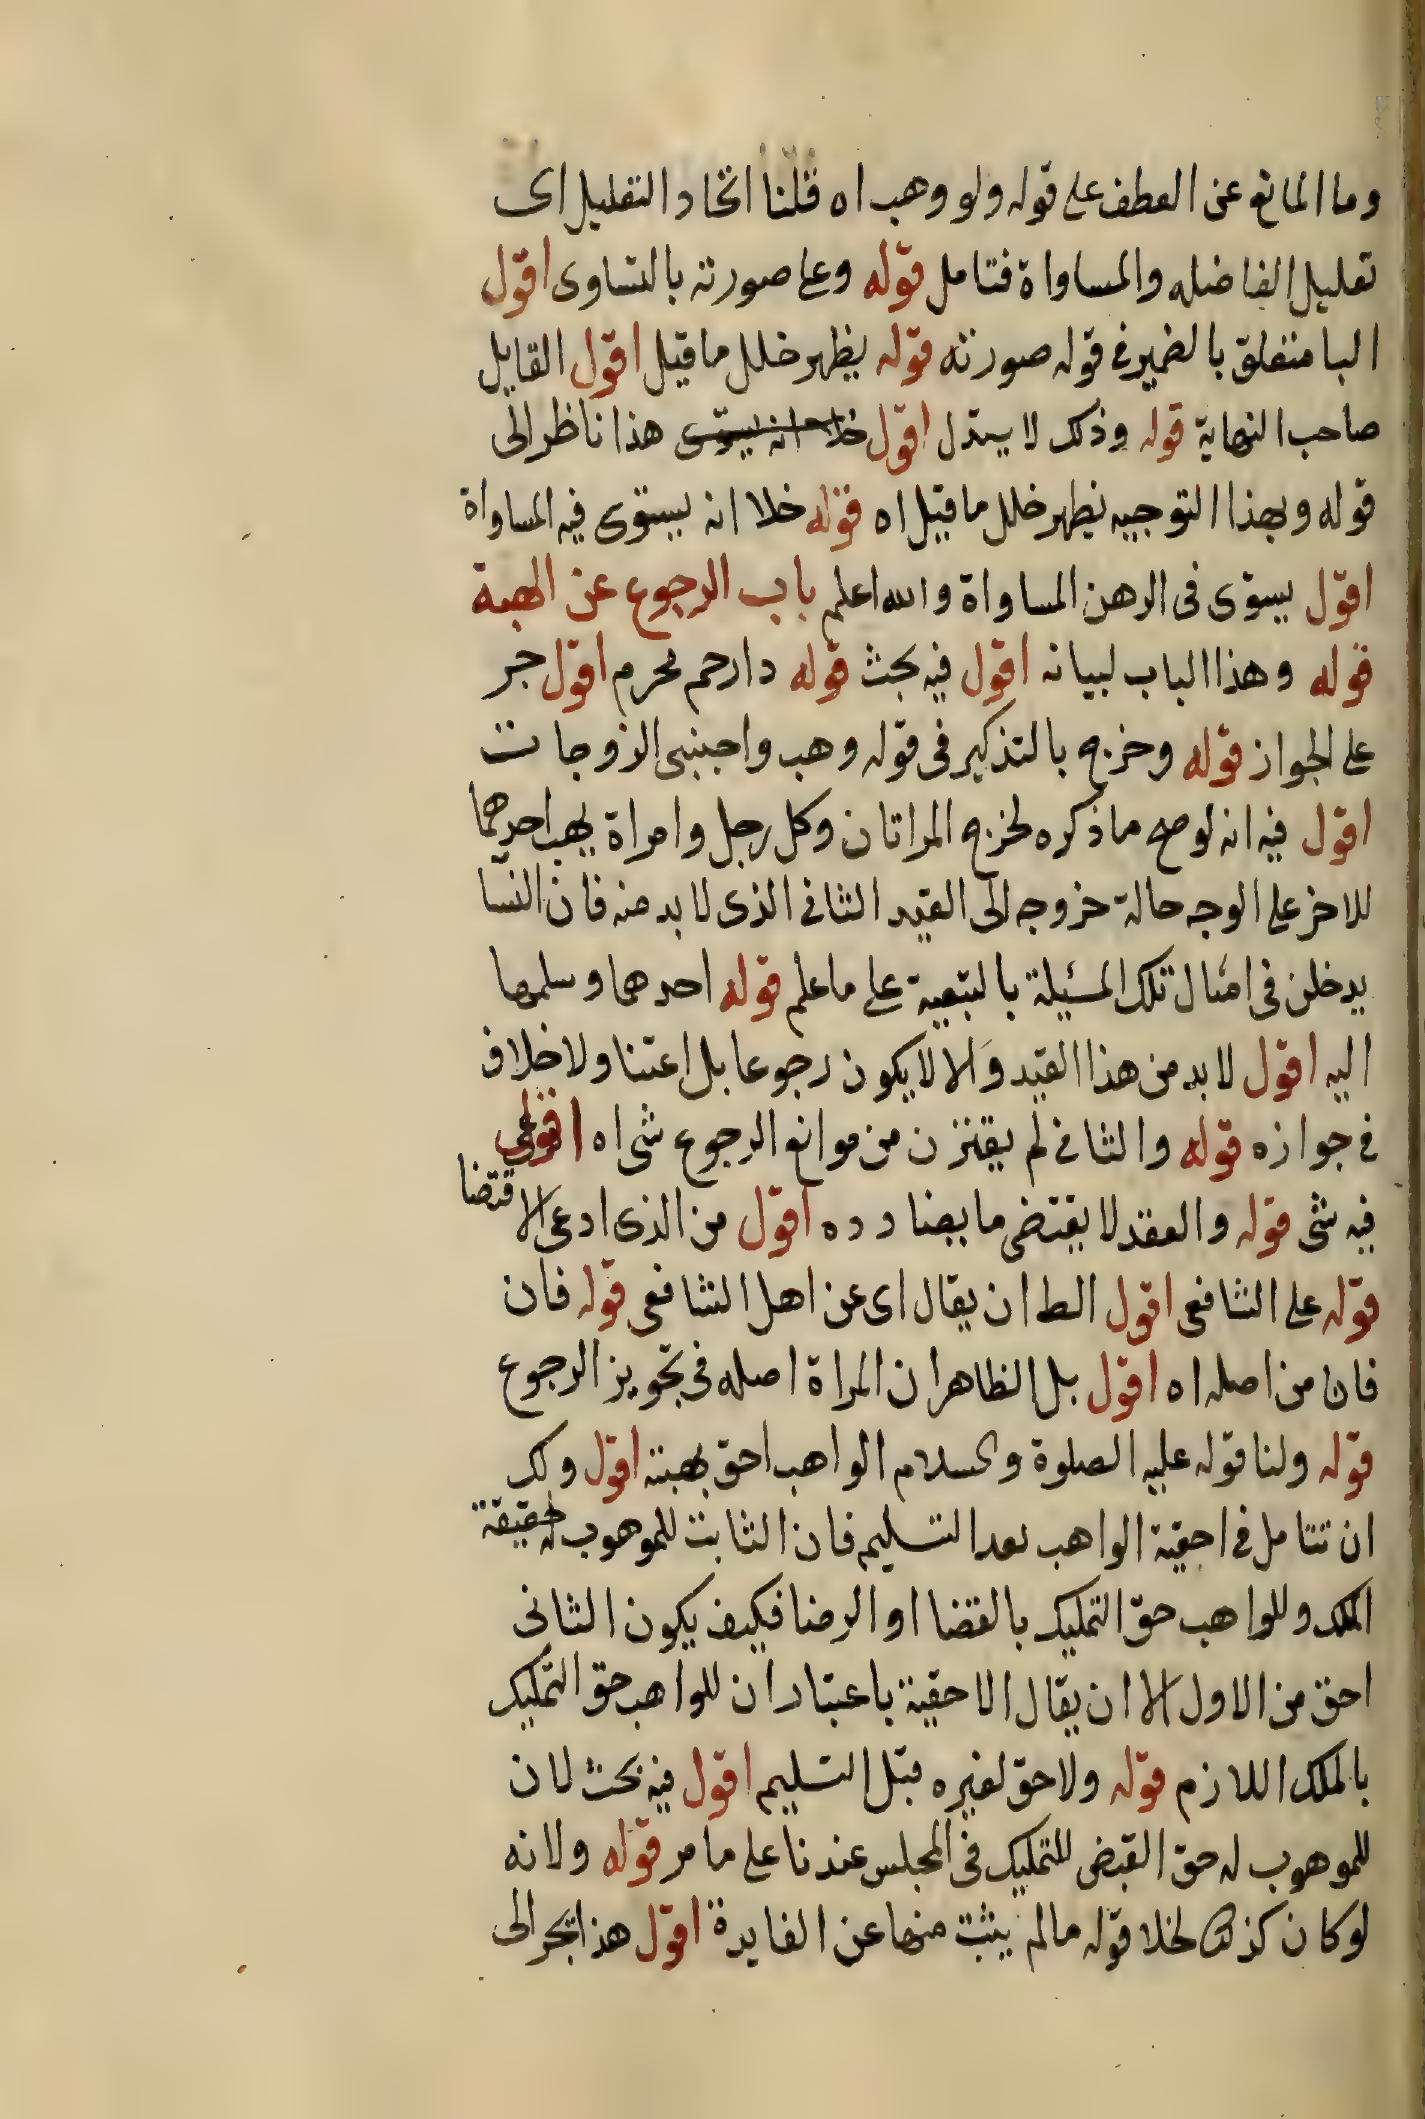 وما المانع عن العطف على قوله ولو وهب اه قلنا اتحاد التعليل اى
تعليل الفاضله والمساواة فتامل قوله وعلى صورته بالتساوى اقول
البا متعلق بالضمير فى قوله صورته قوله يظهر خلل ما قيل اقول القايل
صاحب النهاية قوله وذلك لا يبتدل اقول خلا انه يستوى هذا ناظر الى
قوله وبهذا التوجيه يظهر خلل ما قيل اه قوله خلا انه يستوى فيه المساواة
اقول يستوى فى الرهن المساواة والله اعلم باب الرجوع عن الهبة
قوله وهذا الباب لبيانه اقول فيه بحث قوله دارحم محرم اقول جر
على الجواز قوله وخرج بالتذكير فى قوله وهب واجنبى الزوجات
اقول فيه انه لو صح ما ذكره لخرج المراتان وكل رجل وامراة يهب احدهما
للاخر على الوجه حالة خروجه الى القيد الثانى الذى لا بد منه فان النسا
يدخلن فى امثال تلك المسئيلة بالتبعية على ما علم قوله احدهما وسلمها
اليه اقول لا بد من هذا القيد والا لا يكون رجوعا بل اعتنا ولا خلاف
فى جوازه قوله والثانى لم يقترن من موانع الرجوع شى اه اقول فى
فيه شى قوله والعقد لا يقتضى ما يضادده اقول من الذى ادعى الاقتضا
قوله على الشافعى اقول الط ان يقال اى عن اهل الشافعى قوله فان
فان من اصله اه اقول بل الظاهر ان المراة اصله فى تجويز الرجوع
قوله ولنا قوله عليه الصلوة والسلام الواهب احق بهبته اقول ولك
ان تتامل فى احقية الواهب بعد التسليم فان الثابت للموهوب له حقيقة
الملك وللواهب حق التمليك بالقضا او الرضا فكيف يكون الثانى
احق من الاول الا ان يقال الاحقية باعتبار ان للواهب حق التمليك
بالملك اللازم قوله ولا حق لغيره قبل التسليم اقول فيه بحث لان
للموهوب له حق القبض للتمليك فى المجلس عندنا على ما مر قوله ولانه
لو كان كذلك لخلا قوله مالم يثبت منها عن الفايدة اقول هذا بجر الى